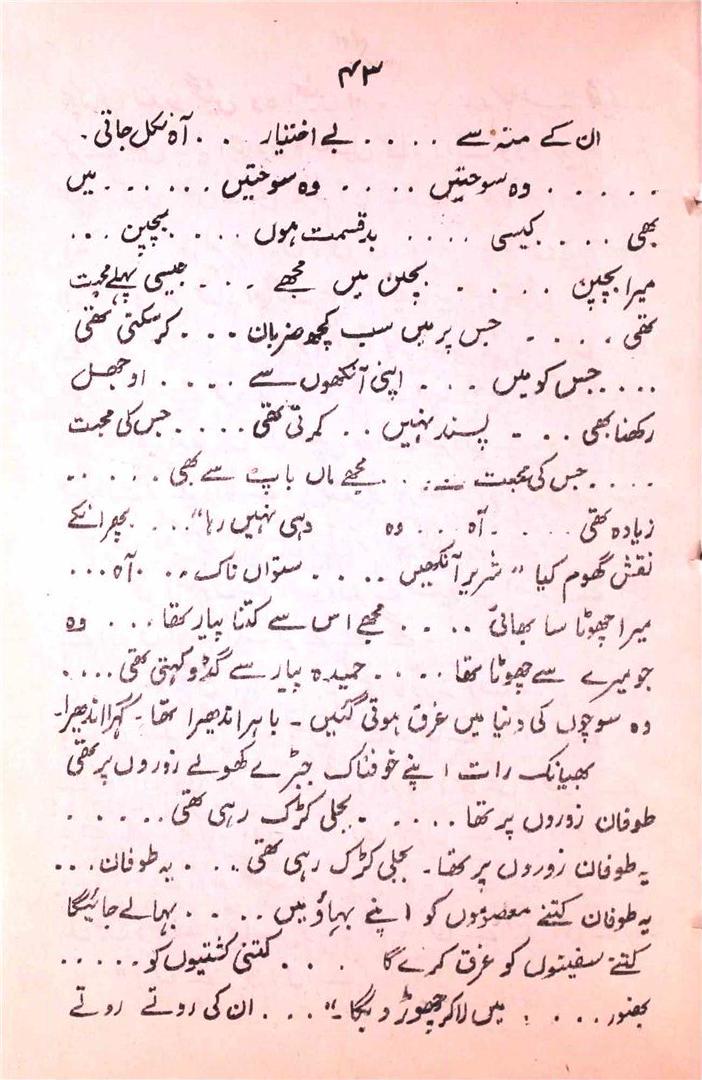 ۴۳
ان کے منہ سے . . . . بے اختیار . . آہ نکل جاتی ۔
. . . . . وہ سوچتیں . . . . وہ سوچتیں . . . . . . میں
بھی . . . . کیسی . . . . بدقسمت ہوں . . . . بچپن . . .
میرا بچپن . . . . . بچپن میں مجھے . . . جیسی پہلے محبت
تھی . . . . . جس پر میں سب کچھ ضربان . . . کر سکتی تھی
. . . . جس کو میں . . . اپنی آنکھوں سے . . . . اوجھل
رکھنا بھی . . . پسند نہیں . . کرتی تھی . . . . جس کی محبت
. . . . جس کی محبت . . . . مجھے ماں باپ سے بھی . . . . .
زیادہ تھی . . . . آہ . . . وہ وہی نہیں رہا“ . . . پھر انکے
نقش گھوم گیا ”شریر آنکھیں . . . . ستواں ناک . . . آہ . . .
میرا چھوٹا سا بھائی . . . . مجھے اس سے کتنا پیار تھا . . . وہ
جو میرے سے چھوٹا تھا . . . . حمیدہ پیار سے گڈو کہتی تھی . . . .
وہ سوچوں کی دنیا میں غرق ہوتی گئیں ۔ باہر اندھیرا تھا ۔ گہرا اندھیرا ۔
بھیانک رات اپنے خوفناک جبڑے کھولے زوروں پر تھی
طوفان زوروں پر تھا . . . . . بجلی کڑک رہی تھی . . . . .
یہ طوفان زوروں پر تھا ۔ بجلی کڑک رہی تھی . . . یہ طوفان . . .
یہ طوفان کتنے معصوموں کو اپنے بہاؤ میں . . . . بہا لے جائیگا
کتنے سفینوں کو غرق کرے گا . . . کتنی کشتیوں کو . . . . .
بھنور . . . . میں لاکر چھوڑ دیگا ۔“ . . . ان کی روتے روتے